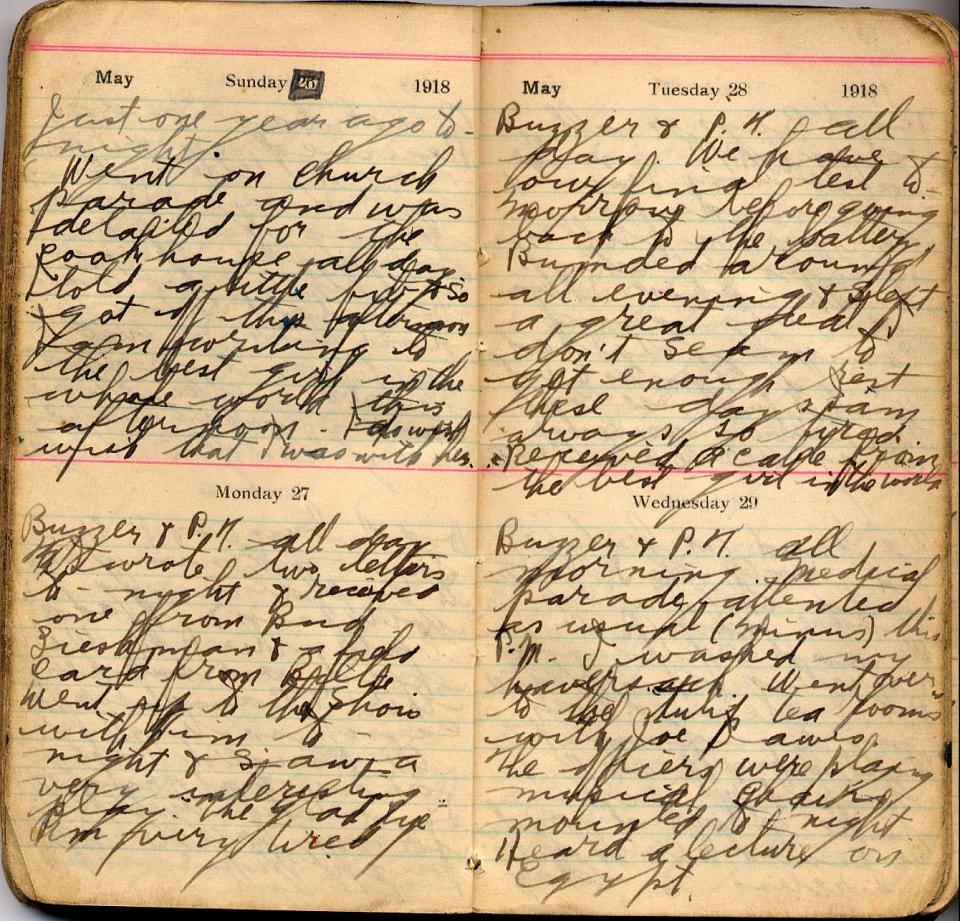 May Sunday 26 1918
Just one year ago to-
night.
Went on church
parade and was
detailed for the
cook house all day
I told a little fib & so
got off this afternoon
I am writing to
the best girl in the
whole world this
afternoon. I do wish
wish that I was with her.
Monday 27
Buzzer & P.H. all day
wrote two letters
to-night & received
one from Bud
& a
card from
Went up to the show
with him to-
night & saw a
very interesting
play the Glad Eye
Am very tired
May Tuesday 28 1918
Buzzer & P.H. all
day. We have
our final test to-
morrow before going
back to the battery
Bummed around
all evening & slept
a great deal I
don't seem to
get enough rest
these days I am
always so tired.
Received a cable from
the best girl in the world
Wednesday 29
Buzzer & P.H. all
morning. Medical
parade attented
as usual (minus) this
P.M. I washed my
haversack. Went over
to the tea rooms
with Joe Dawes.
The officers were playing
musical chairs
mounted to-night
Heard a lecture on
Egypt.